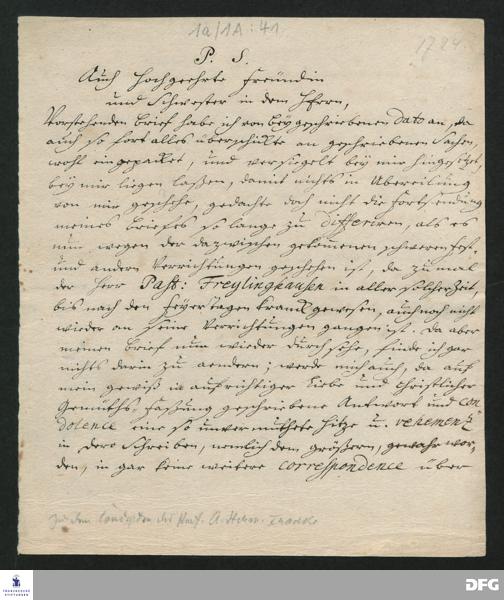 1a/1A:41
1724.
P. S.
Auch Hochgeehrte Freündin
und Schwester in dem HErrn,
Vorstehenden Brief habe ich von beygeschriebenen Dato an, da
auch so fort alles überschickte an geschriebenen Sachen,
wohl eingepacket, und versiegelt bey mir hingesetzet,
bey mir liegen laßen, damit nichts in Übereilung
von mir geschehe, gedachte doch nicht die Fortsendung
meines Briefes so lange zu differiren, als es
nun wegen der dazwischen gekommenen schweren Fest-
und andern Verrichtungen geschehen ist, da zumal
der Herr Past: Freylinghausen in aller solcher Zeit,
bis nach den Feyertagen kranck gewesen, auch noch nicht
wieder an seine Verrichtungen gangen ist. Da aber
meinen Brief nun wieder durchsehe, finde ich gar
nichts darin zu aendern; werde mich auch, da auf
mein gewiß in aufrichtiger Liebe und Christlicher
Gemüths-Faßung geschriebene Antwort und con
dolence eine so unvermuthete Hitze u. vehemenz
in dero Schreiben, nemlich dem größern, gewahr wor-
den, in gar keine weitere correspondence über
zu dem des Prof. A. Herm. Francke
FRANCKESCHE
STIFTUNGEN
DFG